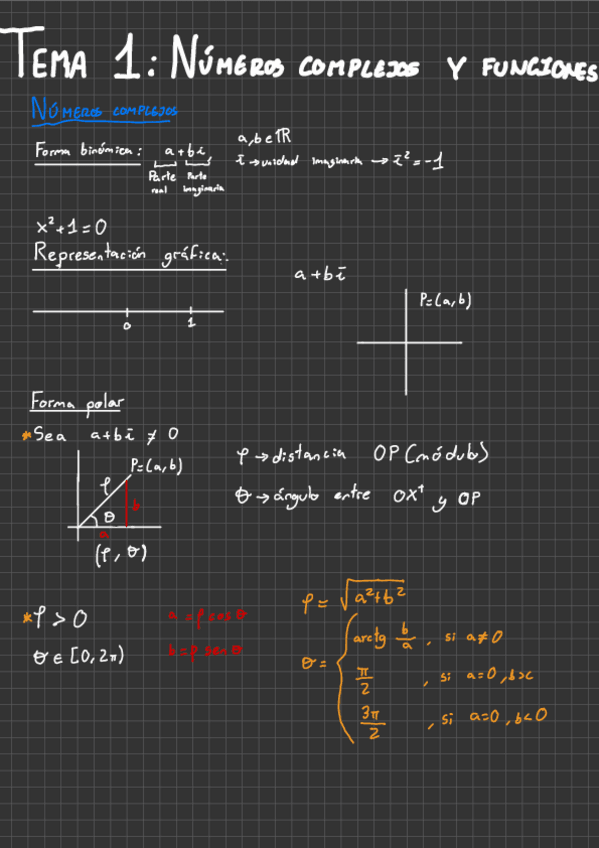 TEMA 1: NÚMEROS COMPLEJOS Y FUNCIONES
NÚMEROS COMPLEJOS
Forma binómica: a+bi a,b∈ℝ
i→unidad imaginaria → i²=-1
Parte real Parte imaginaria
x²+1=0
Representación gráfica:
a+bi
P=(a,b)
0 1
Forma polar
*Sea a+bi ≠ 0
P=(a,b)
ρ
θ
b
a
(ρ, θ)
ρ→distancia OP (módulo)
θ→ángulo entre OX⁺ y OP
*ρ > 0
θ ∈ [0,2π)
a = ρ cos θ
b = ρ sen θ
ρ = √a²+b²
θ = { arctg b/a , si a≠0
π/2 , si a=0, b>
3π/2 , si a=0, b<0